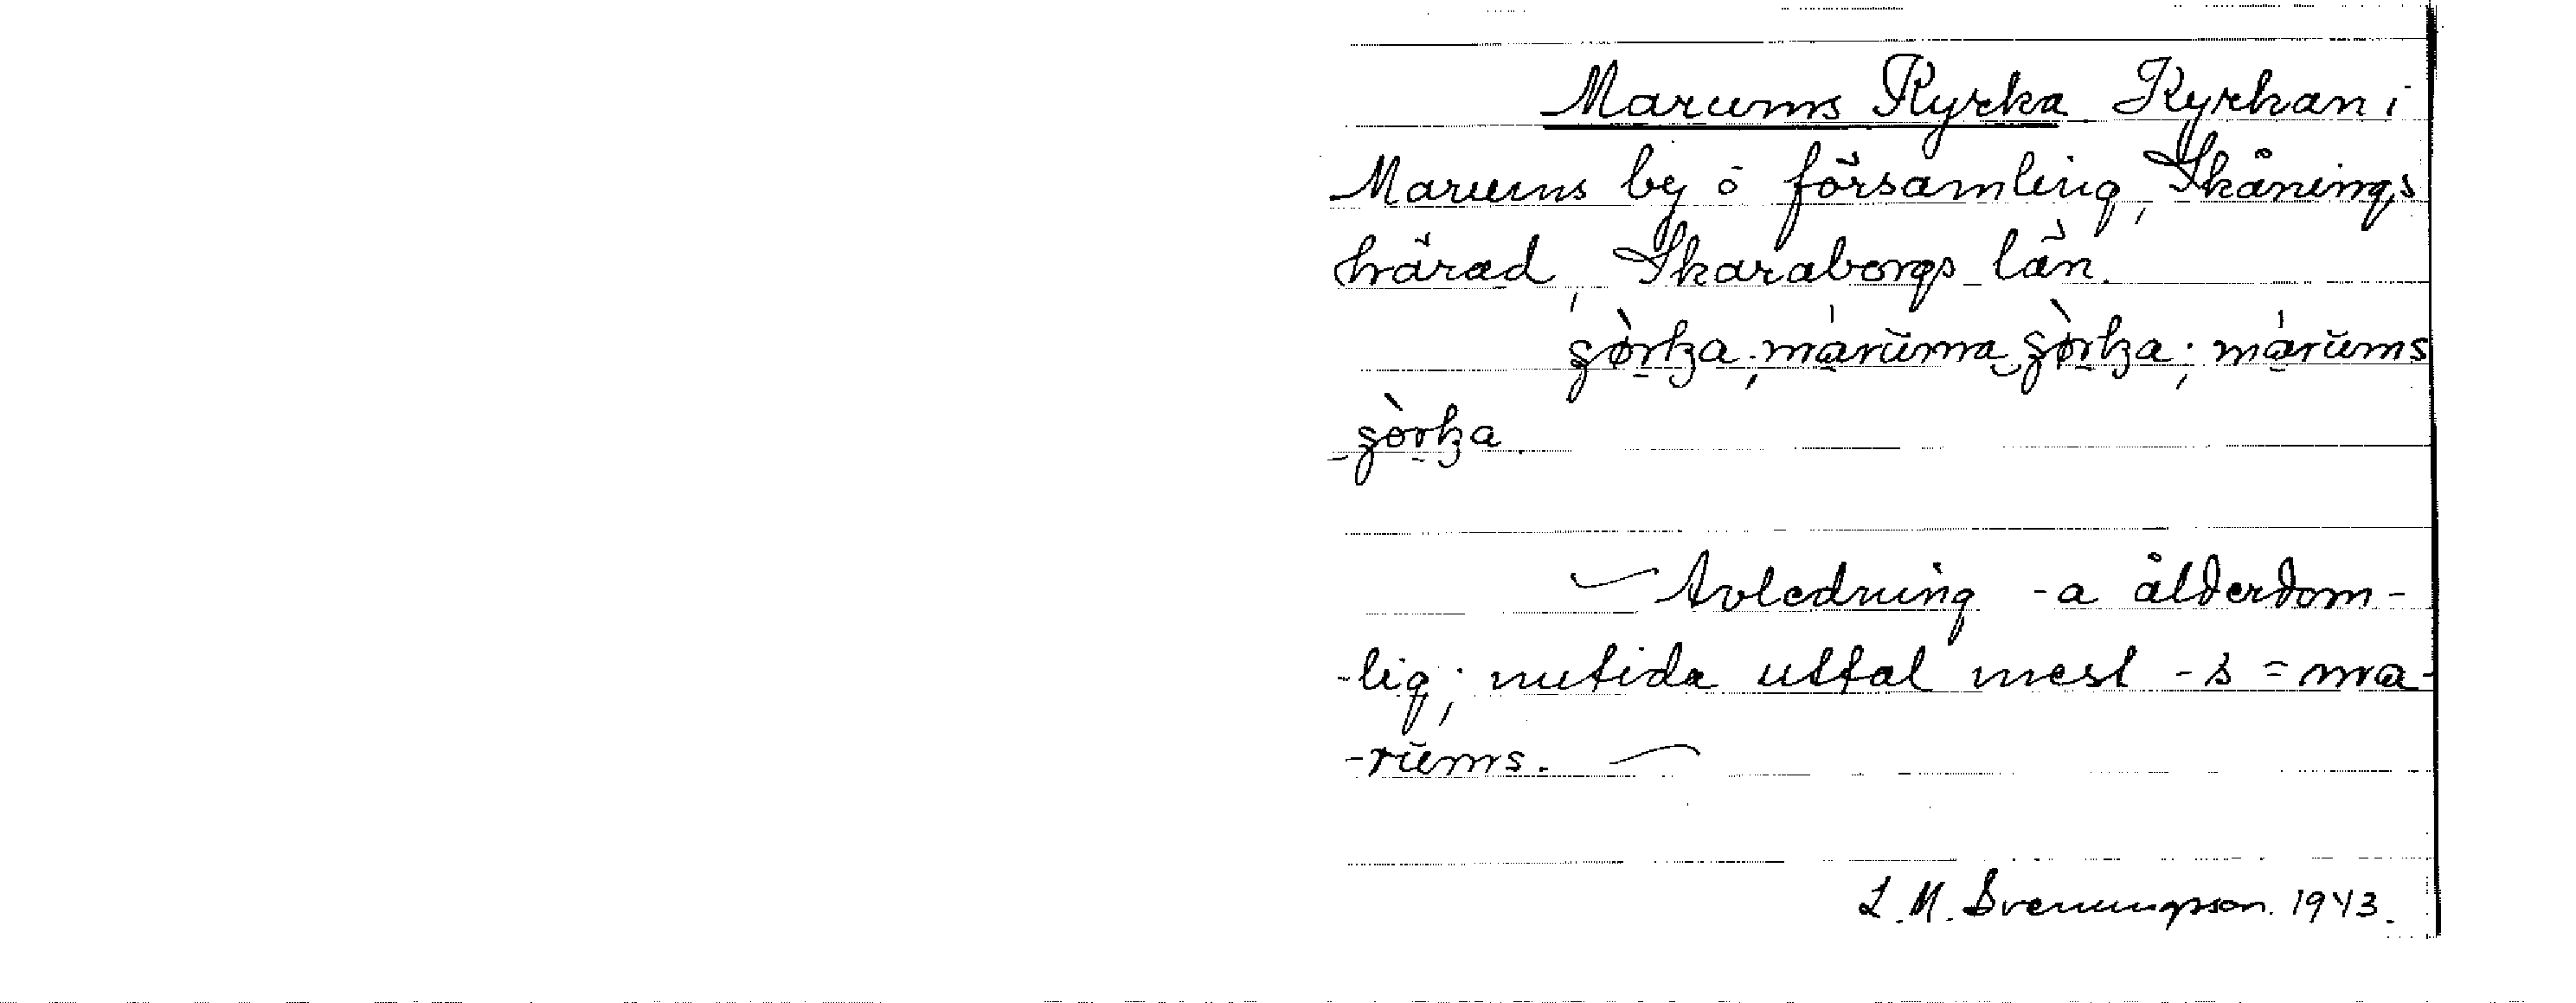 Marums Kyrka Kyrkan i
Marums by o församling, Skånings
härad, Skaraborgs län.
Avledning -a ålderdom-
-lig; nutida uttal mest -s = ma-
-rŭms.
L. M. Svenungsson. 1943.